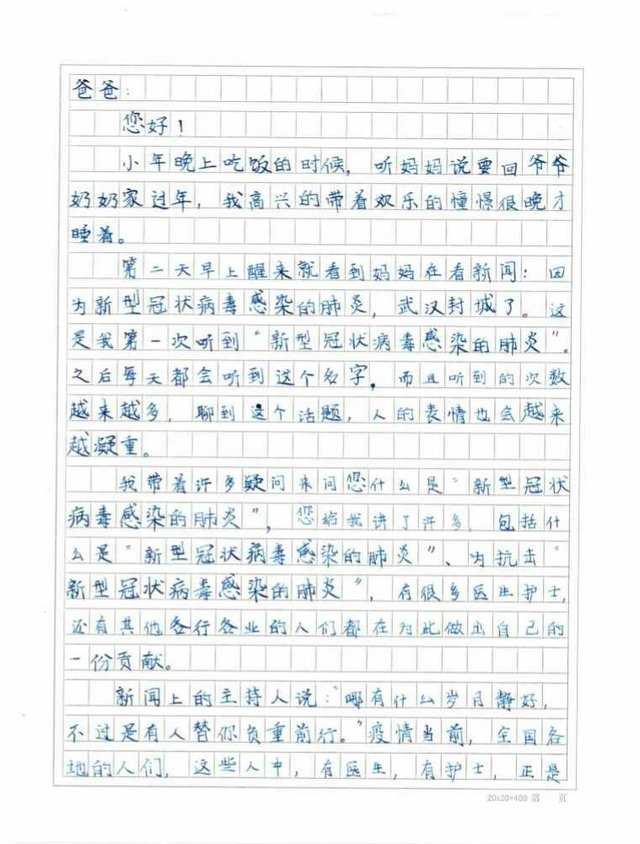 爸爸：
您好！
小年晚上吃饭的时候，听妈妈说要回爷爷
奶奶家过年，我高兴的带着欢乐的憧憬很晚才
睡着。
第二天早上醒来就看到妈妈在看新闻：因
为新型冠状病毒感染的肺炎，武汉封城了。这
是我第一次听到“新型冠状病毒感染的肺炎”。
之后每天都会听到这个名字，而且听到的次数
越来越多，聊到这个话题，人的表情也会越来
越凝重。
我带着许多疑问来问您什么是“新型冠状
病毒感染的肺炎”，您给我讲了许多，包括什
么是“新型冠状病毒感染的肺炎”、为抗击“
新型冠状病毒感染的肺炎”，有很多医生护士，
还有其他各行各业的人们都在为此做出自己的
一份贡献。
新闻上的主持人说：“哪有什么岁月静好，
不过是有人替你负重前行。”疫情当前，全国各
地的人们，这些人中，有医生，有护士，正是
20×20=400 第 页